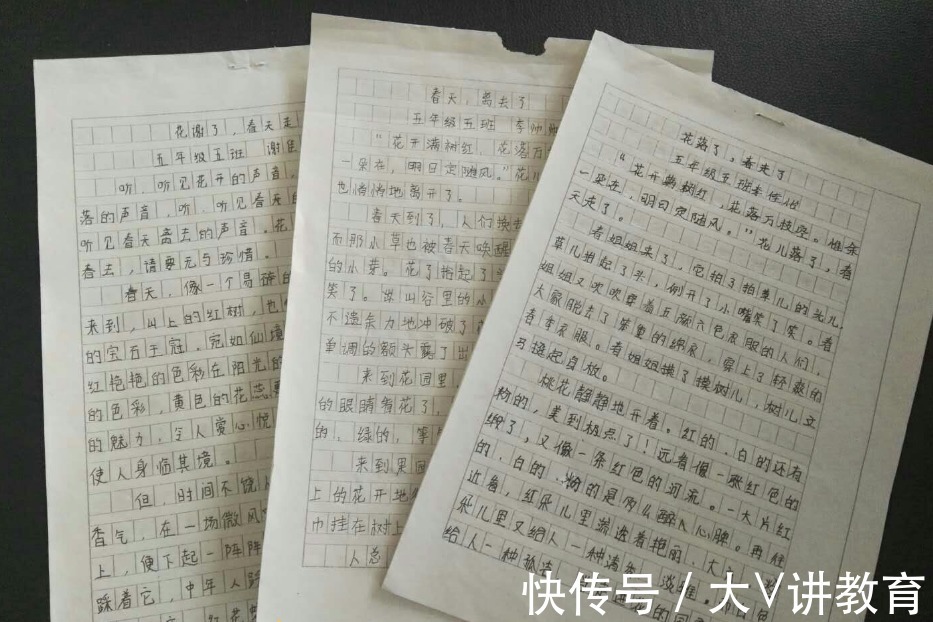 花谢了，春天走
五年级五班 谢佳
听，听见花开的声音。
落的声音，听，听见春天
听见春天离去的声音。花
春去，请要元与珍惜。
春天，像一个
来到，山上的红树，也
的宝石王冠，宛如仙境
红艳艳的色彩在阳光的
的色彩，黄色的花蕊
的魅力，令人赏心悦
使人身临其境。
但，时间不饶人
香气，在一场微风
上，便下起一阵阵
踩着它，中年人
春天，离去了
五年级五班 李帅
“花开满树红，花落万
一朵在，明日定随风。”花儿
也悄悄地离开了。
春天到了，人们换去
而那小草也被春天唤醒
的小芽。花了抬起了
笑了。深山谷里的小
不遗余力地冲破了
单调的额头露了出
来到花园里，
的眼睛看花了，
的，绿的，等
来到果园
上的花开地
巾挂在树上
人总
花落了，春走了
五年级五班李佳
“花开满树红，花落万枝空。惟余
一朵在，明日定随风。”花儿落了，春
天走了。
春姐姐来了，它拍了拍草儿的头儿，
草儿抬起了头，咧开了小嘴笑了笑。春
姐姐又吹吹穿着五颜六色衣服的人们，
大家脱去了笨重的绵衣，穿上了轻薄的
春季衣服。春姐姐摸了摸树儿，树儿立
马挺起自板。
桃花静静地开着。红的、白的还有
粉的，美到极点了！远看像一歌红色的
绸了，又像一条红色的河流。一大片红
的、白的、粉的是多么醉人心脾。再往
近看，红朵儿里渗透着艳丽、大
朵儿里又给人一种清
给人一种孤
快传号 / 大V讲教育